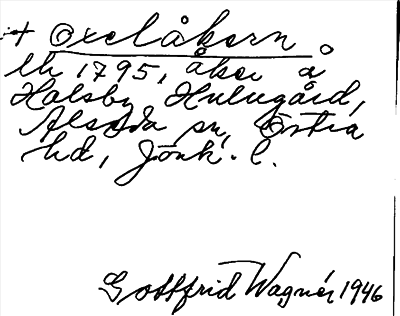 + Oxelåkern
lh 1795, åker å
Holsby Hulugård,
Alseda sn, Östra
hd, Jönk. l.
Gottfrid Wagnér 1946